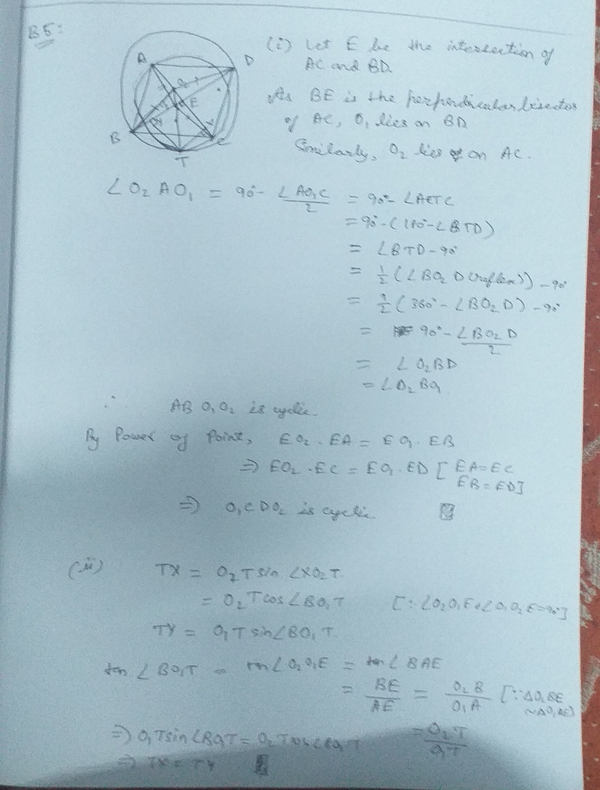 B5:
A
D
E
B
C
T
(i) Let E be the intersection of
AC and BD.
As BE is the perpendicular bisector
of AC, O₁ lies on BD
Similarly, O₂ lies on AC.
∠O₂AO₁ = 90° - ∠AO₁C/2 = 90° - ∠ATC
= 90° - (180° - ∠BTD)
= ∠BTD - 90°
= 1/2 (∠BO₂D (reflex)) - 90°
= 1/2 (360° - ∠BO₂D) - 90°
= 90° - ∠BO₂D/2
= ∠O₂BD
= ∠O₂BO₁
∴ ABO₁O₂ is cyclic.
By Power of Point, EO₂ . EA = EO₁ . EB
⇒ EO₂ . EC = EO₁ . ED [EA = EC
EB = ED]
⇒ O₁CDO₂ is cyclic
(ii) TX = O₂T sin ∠XO₂T.
= O₂T cos ∠BO₁T [∵ ∠O₂O₁E + ∠O₁O₂E = 90°]
TY = O₁T sin ∠BO₁T.
tan ∠BO₁T = tan ∠O₂O₁E = tan ∠BAE
= BE/AE = O₂B/O₁A [∵ ΔO₂BE
~ ΔO₁AE]
⇒ O₁T sin ∠BO₁T = O₂T cos ∠BO₁T = O₂T/O₁T
⇒ TX = TY